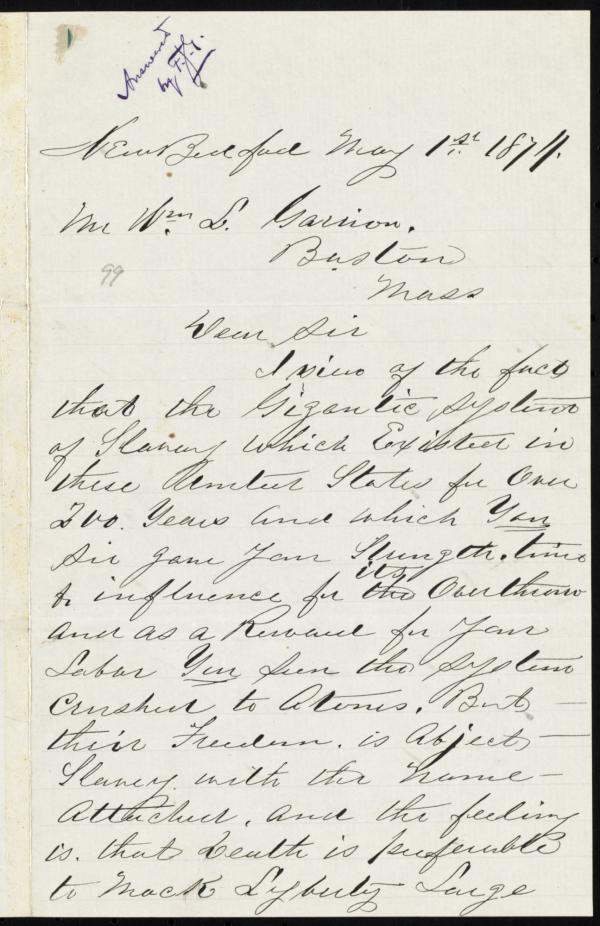 Answered
by F. J. G.
New Bedford May 1st. 1879.
Mr Wm. L. Garrison.
Boston
99
Mass
Dear Sir
I view of the fact
that the Gigantic system
of Slavery which Existed in
these United States for Over
200. Years and which You
Sir gave Your Strength. time
its
& influence for the Overthrow
and as a Reward for Your
Labor You seen the system
Crushed to Atoms. But —
their Freedom. is Abject —
Slavery. with the name —
Attached. and the feeling
is. that Death is preferable
to Mock Lyberty Large